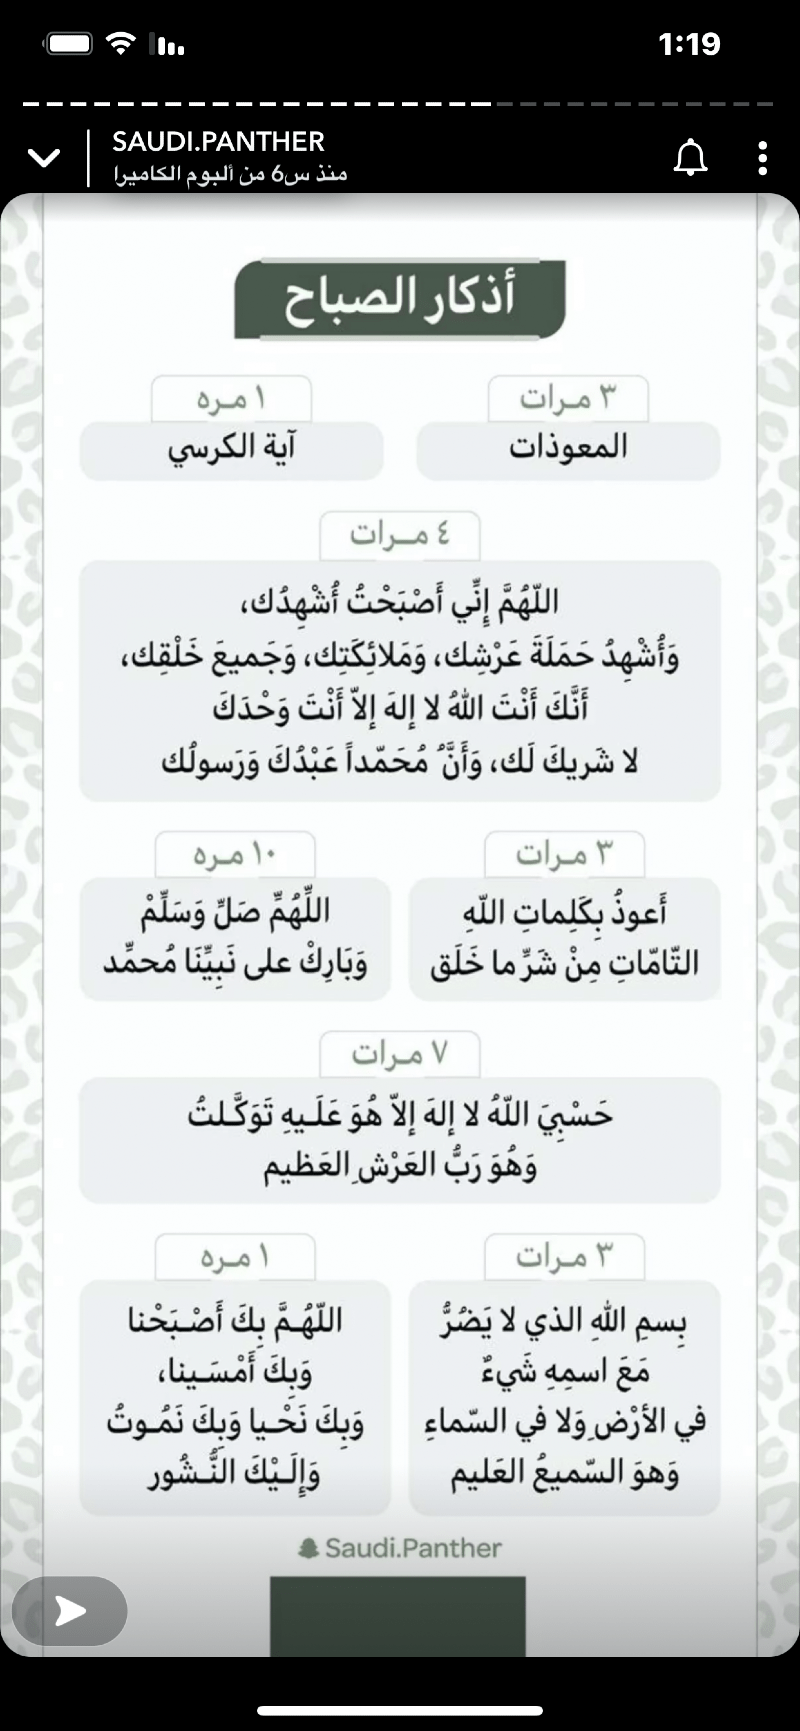 1:19
SAUDI.PANTHER
منذ س6 من ألبوم الكاميرا
أذكار الصباح
٣ مـرات
المعوذات
١ مـره
آية الكرسي
٤ مـرات
اللّهُمَّ إِنِّي أَصْبَحْتُ أُشْهِدُك،
وَأُشْهِدُ حَمَلَةَ عَرْشِك، وَمَلائِكَتِك، وَجَميعَ خَلْقِك،
أَنَّكَ أَنْتَ اللهُ لا إلهَ إلاّ أَنْتَ وَحْدَكَ
لا شَريكَ لَك، وَأَنَّ مُحَمّداً عَبْدُكَ وَرَسولُك
٣ مـرات
أَعوذُ بِكَلِماتِ اللّهِ
التّامّاتِ مِنْ شَرِّ ما خَلَق
١٠ مـره
اللِّهُمِّ صَلِّ وَسَلِّمْ
وَبَارِكْ على نَبِيِّنَا مُحمِّد
٧ مـرات
حَسْبِيَ اللّهُ لا إلهَ إلاّ هُوَ عَلَـيهِ تَوَكَّـلتُ
وَهُوَ رَبُّ العَرْشِ العَظيم
٣ مـرات
بِسمِ اللهِ الذي لا يَضُرُّ
مَعَ اسمِهِ شَيءٌ
في الأرْضِ وَلا في السّماءِ
وَهوَ السّميعُ العَليم
١ مـره
اللّهُـمَّ بِكَ أَصْـبَحْنا
وَبِكَ أَمْسَـينا،
وَبِكَ نَحْـيا وَبِكَ نَمُـوتُ
وَإِلَـيْكَ النُّـشُور
Saudi.Panther